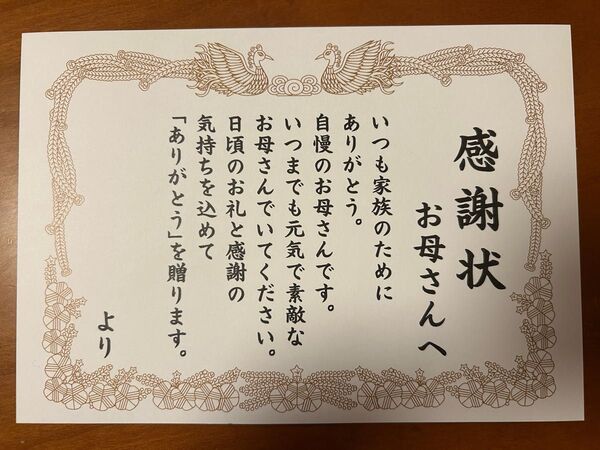 感謝状
お母さんへ
いつも家族のために
ありがとう。
自慢のお母さんです。
いつまでも元気で素敵な
お母さんでいてください。
日頃のお礼と感謝の
気持ちを込めて
「ありがとう」を贈ります。
より